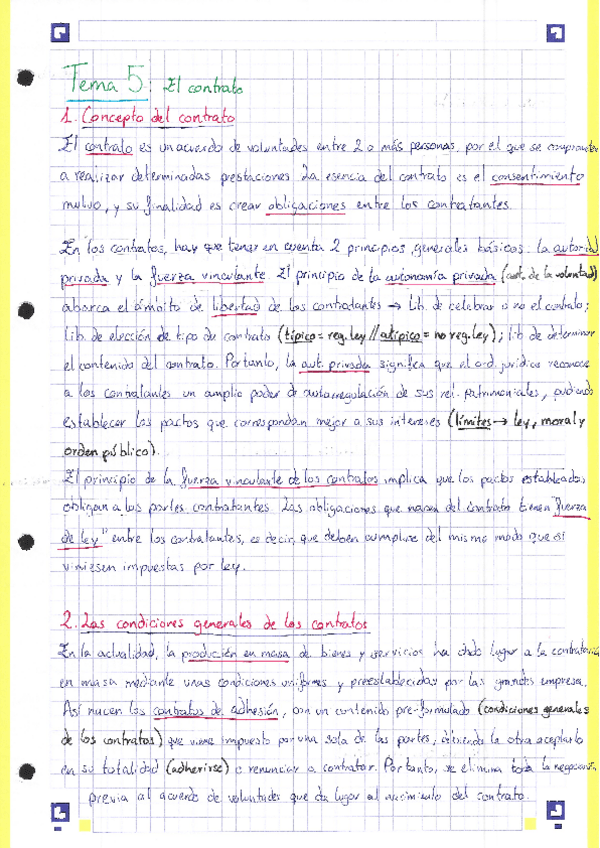 Tema 5: El contrato
1. Concepto del contrato
El contrato es un acuerdo de voluntades entre 2 o más personas, por el que se comprometen
a realizar determinadas prestaciones. La esencia del contrato es el consentimiento
mutuo, y su finalidad es crear obligaciones entre los contratantes.
En los contratos, hay que tener en cuenta 2 principios generales básicos: la autonomía
privada y la fuerza vinculante. El principio de la autonomía privada (aut. de la voluntad)
abarca el ámbito de libertad de los contratantes → Lib. de celebrar o no el contrato;
lib. de elección de tipo de contrato (típico = reg. ley // atípico = no reg. ley); lib de determinar
el contenido del contrato. Por tanto, la aut. privada significa que el ord. jurídico reconoce
a los contratantes un amplio poder de autorregulación de sus rel. patrimoniales, pudiendo
establecer los pactos que correspondan mejor a sus intereses (límites → ley, moral y
orden público).
El principio de la fuerza vinculante de los contratos implica que los pactos establecidos
obligan a las partes contratantes. Las obligaciones que nacen del contrato tienen "fuerza
de ley" entre los contratantes, es decir, que deben cumplirse del mismo modo que si
viniesen impuestas por ley.
2. Las condiciones generales de los contratos
En la actualidad, la producción en masa de bienes y servicios ha dado lugar a la contratación
en masa mediante unas condiciones uniformes y preestablecidas por las grandes empresa
Así nacen los contratos de adhesión, con un contenido pre-formulado (condiciones generales
de los contratos) que viene impuesto por una sola de las partes, debiendo la otra aceptarlo
en su totalidad (adherirse) o renunciar a contratar. Por tanto, se elimina toda la negociación
previa al acuerdo de voluntades que da lugar al nacimiento del contrato.